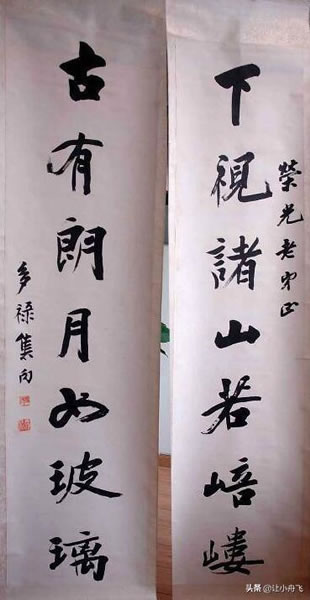 榮光老弟正
下視諸山若㟝嶁
古有朗月如玻璃
多祿集句
头条 @让小舟飞